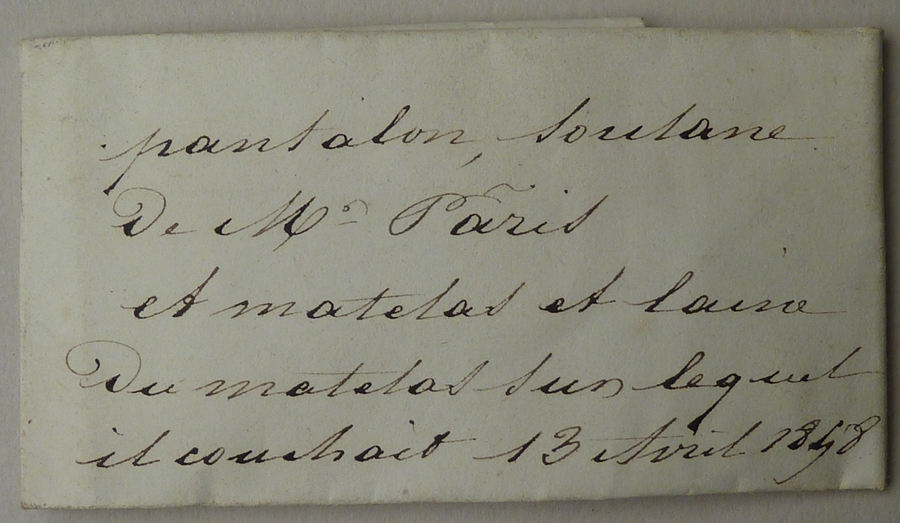 pantalon, soutane
De Mr Pâris
et matelas et laine
Du matelas sur lequel
il couchait 13 Avril 1858